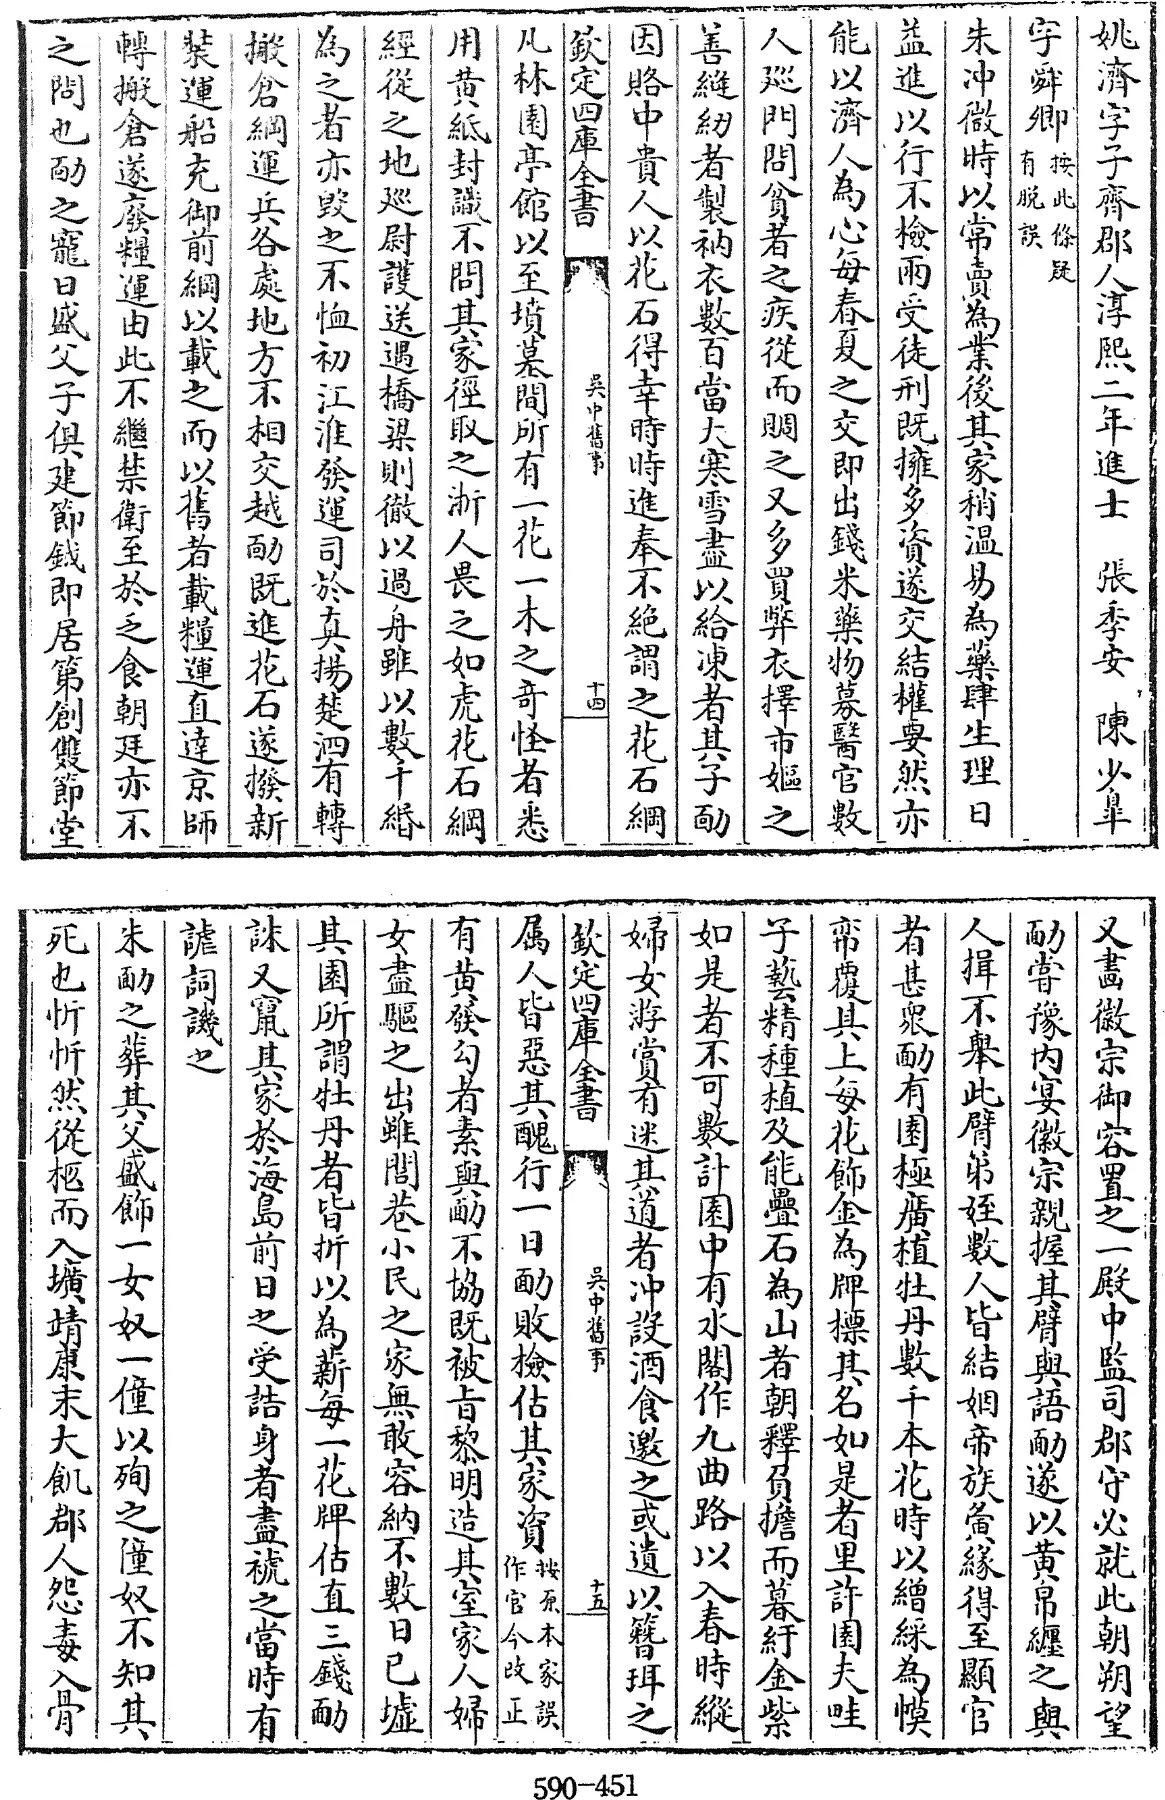 姚濟字子齊郡人淳熙二年進士　張季安　陳少臯
字舜卿按此條疑有脱誤
朱沖微時以常賣為業後其家稍温易為藥肆生理日
益進以行不檢兩受徒刑既擁多資遂交結權要然亦
能以濟人為心每春夏之交即出錢米藥物募醫官數
人廵門問貧者之疾從而賙之又多買弊衣擇市嫗之
善縫紉者製衲衣數百當大寒雪盡以給凍者其子勔
因賂中貴人以花石得幸時時進奉不絶謂之花石綱
欽定四庫全書
吳中舊事
十四
凡林園亭館以至墳墓間所有一花一木之竒怪者悉
用黄紙封識不問其家徑取之浙人畏之如虎花石綱
經從之地廵尉護送遇橋梁則徹以過舟雖以數千緡
為之者亦毁之不恤初江淮發運司於真揚楚泗有轉
搬倉綱運兵各處地方不相交越勔既進花石遂撥新
裝運船充御前綱以載之而以舊者載糧運直達京師
轉搬倉遂廢糧運由此不繼禁衛至於乏食朝廷亦不
之問也勔之寵日盛父子俱建節鉞即居第創雙節堂
又畵徽宗御容置之一殿中監司郡守必就此朝朔望
勔嘗豫内宴徽宗親握其臂與語勔遂以黄帛纒之與
人揖不舉此臂弟姪數人皆結姻帝族夤緣得至顯官
者甚衆勔有園極廣植牡丹數千本花時以繒綵為幙
帟覆其上每花飾金為牌標其名如是者里許園夫畦
子藝精種植及能疊石為山者朝釋負擔而暮紆金紫
如是者不可數計園中有水閣作九曲路以入春時縱
婦女游賞有迷其道者沖設酒食邀之或遺以簪珥之
欽定四庫全書
吳中舊事
十五
属人皆惡其醜行一日勔敗檢估其家資按原本家誤作官今改正
有黄發勾者素與勔不協既被㫖黎明造其室家人婦
女盡驅之出雖閭巷小民之家無敢容納不數日已墟
其園所謂牡丹者皆折以為薪每一花牌估直三錢勔
誅又竄其家於海島前日之受誥身者盡禠之當時有
謔詞譏之
朱勔之葬其父盛飾一女奴一僮以殉之僮奴不知其
死也忻忻然從柩而入壙靖康末大飢郡人怨毒入骨
590-451